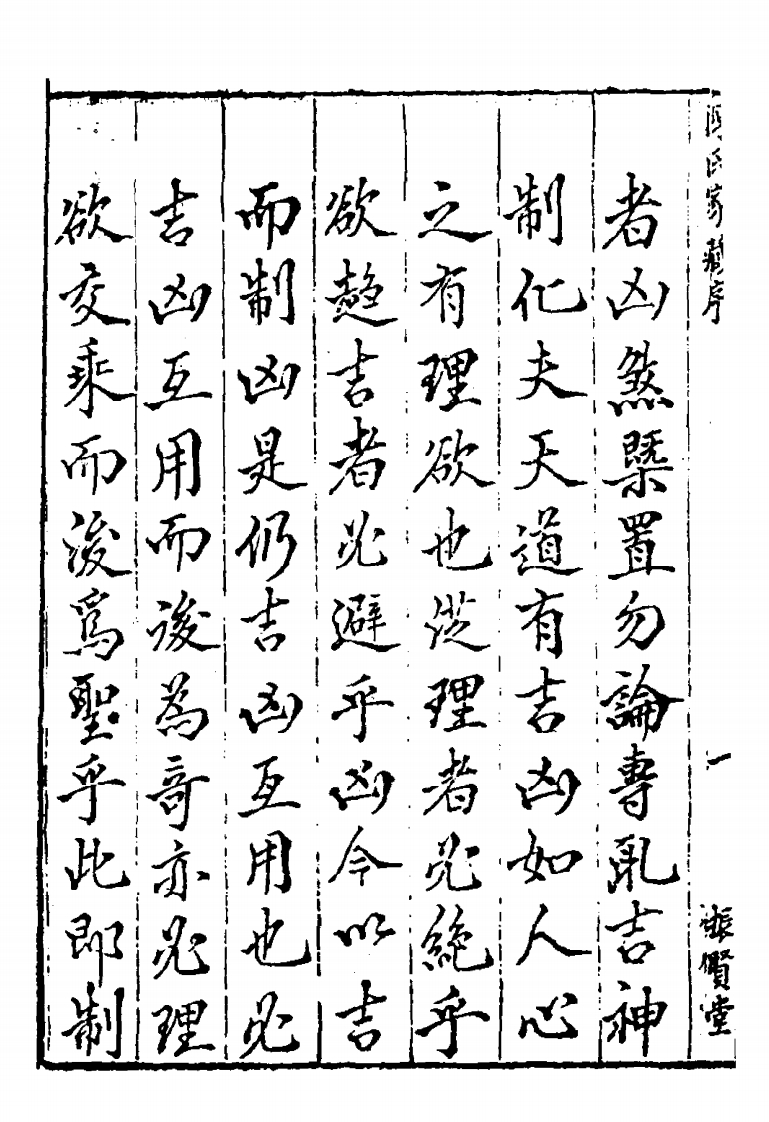 氏家藏序
一
振賢堂
者凶煞槩置勿論專取吉神
制化夫天道有吉凶如人心
之有理欲也從理者必絶乎
欲趨吉者必避乎凶今以吉
而制凶是仍吉凶互用也必
吉凶互用而後為奇亦必理
欲交乘而後爲聖乎此即制